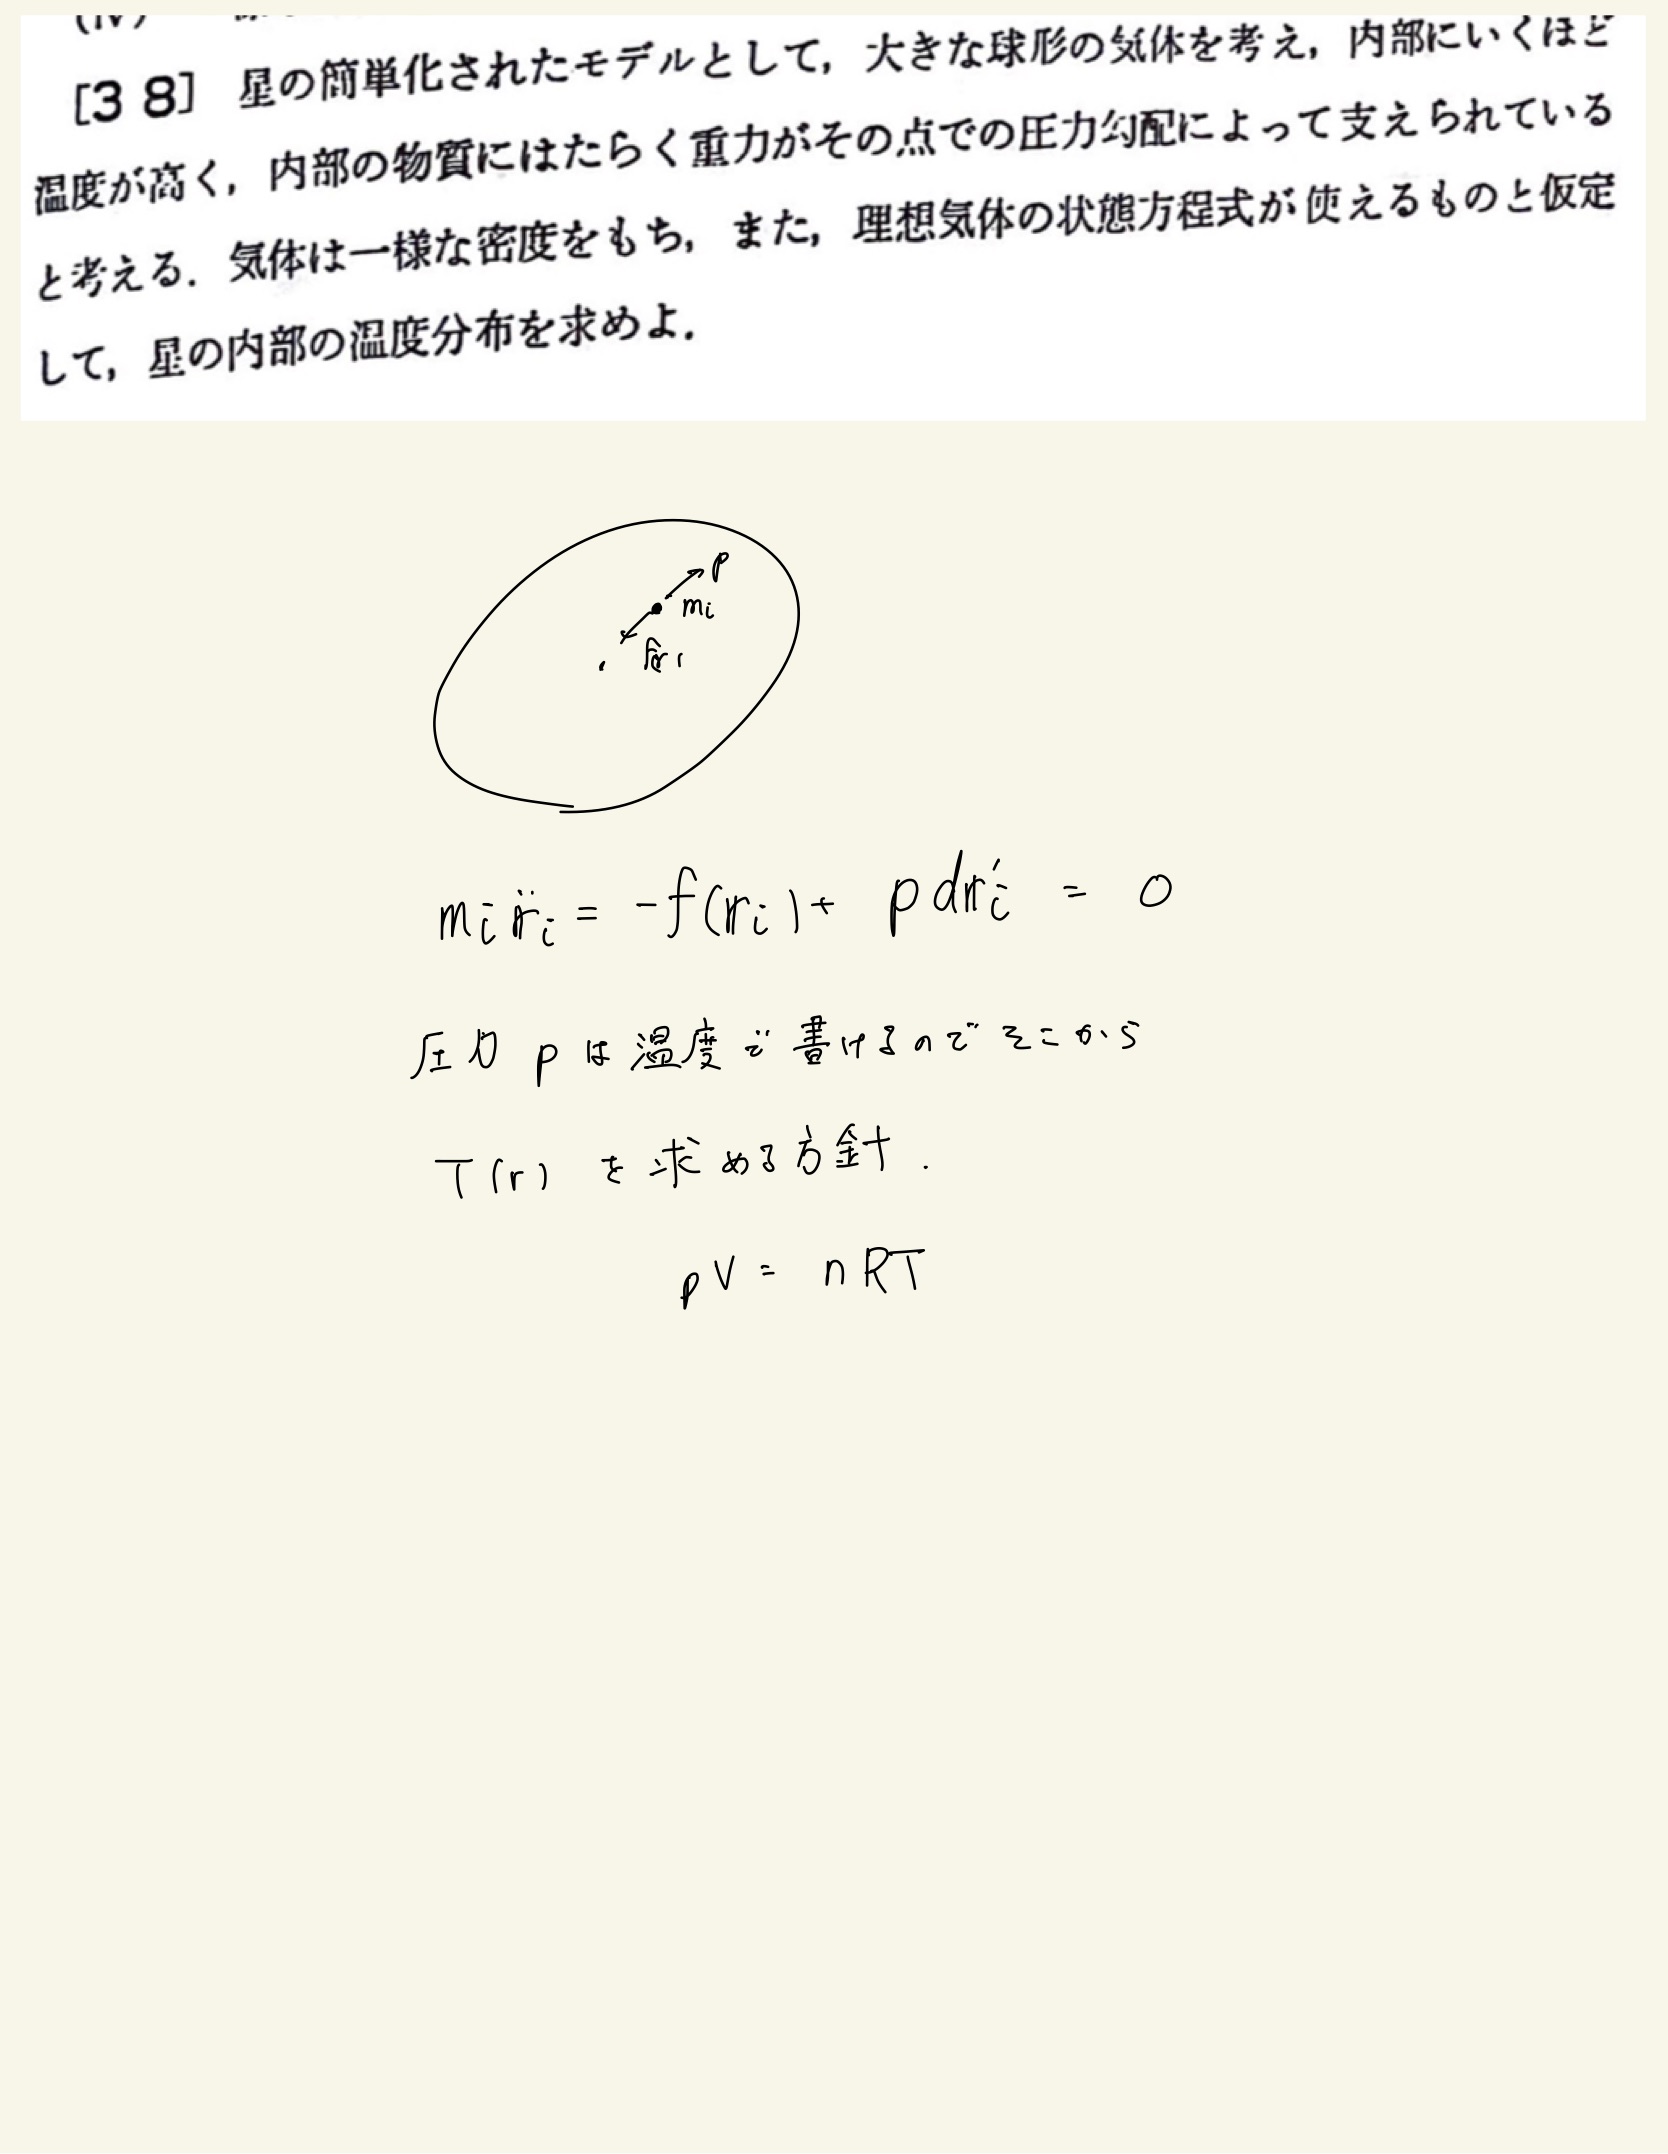 (iv)
[38] 星の簡単化されたモデルとして，大きな球形の気体を考え，内部にいくほど
温度が高く，内部の物質にはたらく重力がその点での圧力勾配によって支えられている
と考える．気体は一様な密度をもち，また，理想気体の状態方程式が使えるものと仮定
して，星の内部の温度分布を求めよ．
p
mi
mi r̈i = -f(ri) + p dri = 0
圧力 p は温度で書けるのでそこから
T(r) を求める方針．
pV = nRT